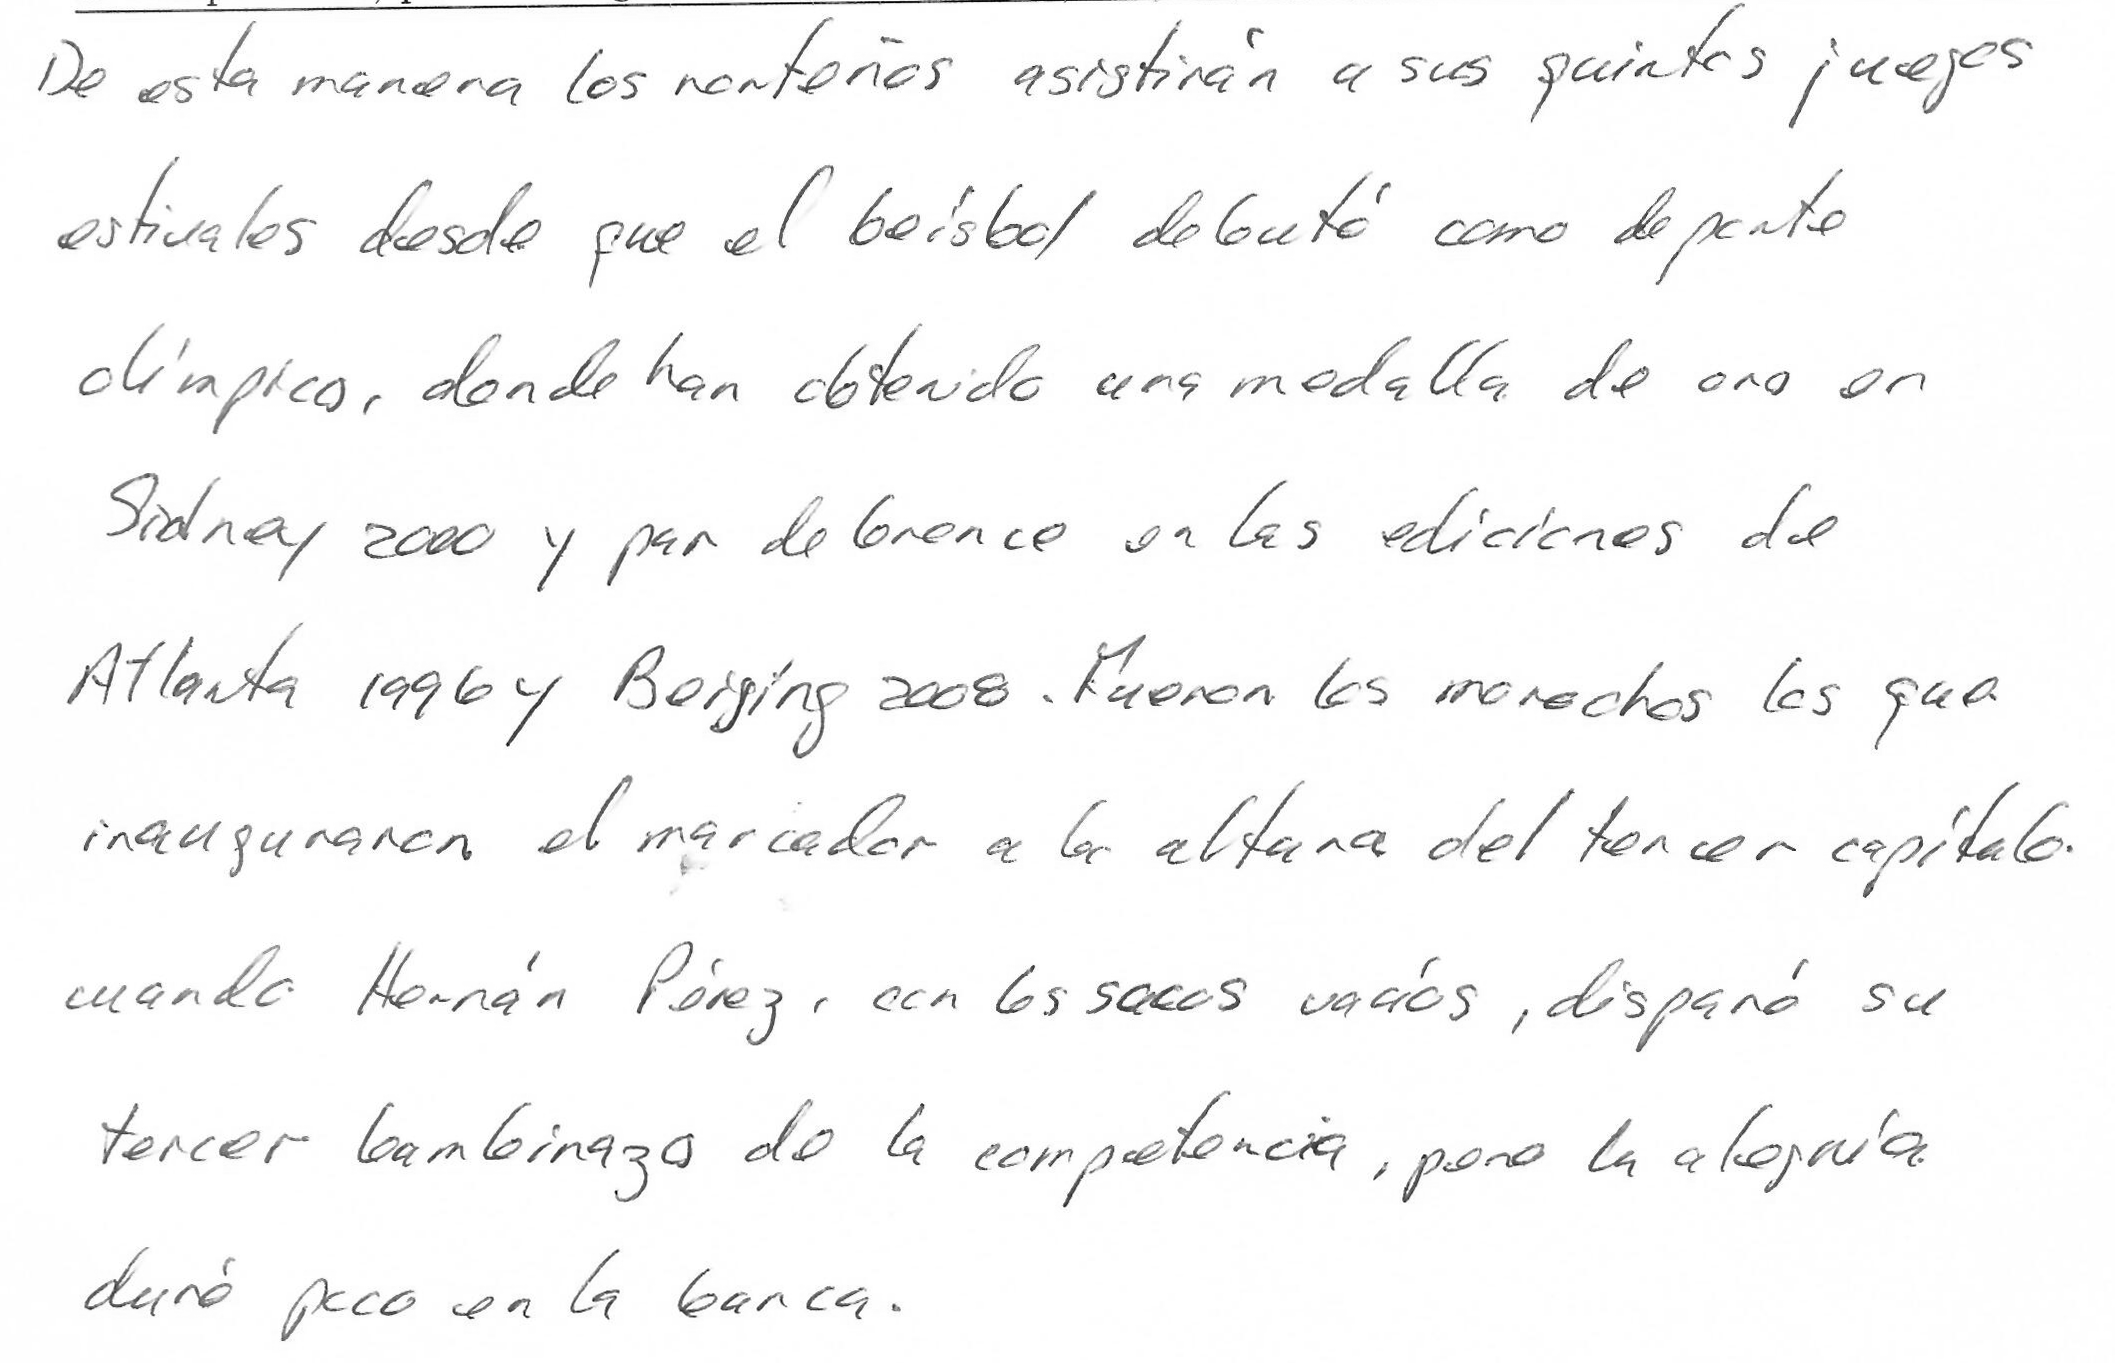 De esta manera los norteños asistirán a sus quintos juegos
estivales desde que el beísbol debutó como deporte
olímpico, donde han obtenido una medalla de oro en
Sidney 2000 y par de bronce en las ediciones de
Atlanta 1996 y Beijing 2008. Fueron los morochos los que
inauguraron el marcador a la altura del tercer capítulo.
cuando Hernán Pérez, con los sacos vacíos, disparó su
tercer bambinazo de la competencia, pero la alegría
duró poco en la banca.